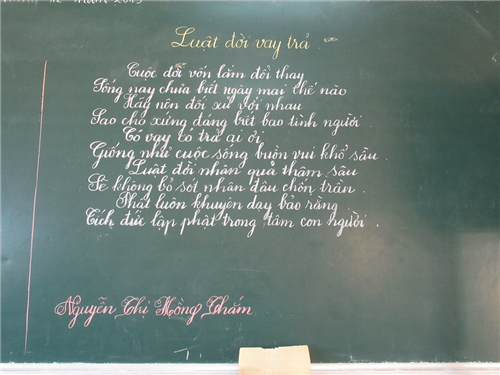 năm 2013
Luật đời vay trả
Cuộc đời vốn lắm đổi thay
Sống nay chưa biết ngày mai thế nào
Hãy nên đối xử với nhau
Sao cho xứng đáng biết bao tình người
Có vay có trả ai ơi
Giống như cuộc sống buồn vui khổ sầu.
Luật đời nhân quả thâm sâu
Sẽ không bỏ sót nhân đâu chốn trần.
Phật luôn khuyên dạy bảo rằng
Tích đức lập phật trong tâm con người.
Nguyễn Thị Hồng Thắm